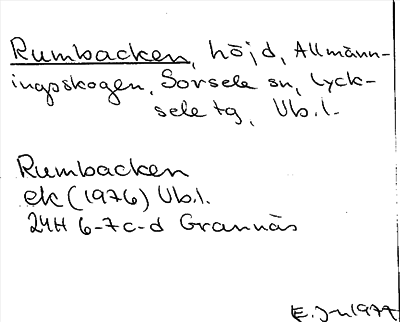 Rumbacken, höjd, Allmänn-
ingsskogen, Sorsele sn, Lyck-
sele tg, Vb.l.
Rumbacken
ek (1976) Vb.l.
24H 6-7c-d Grannäs
E. J-n 1977